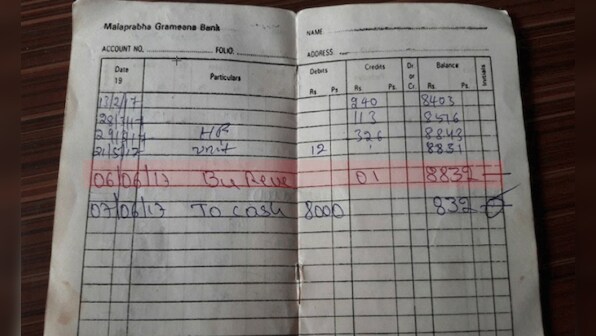 Malaprabha Grameena Bank
NAME
ACCOUNT NO. FOLIO
ADDRESS
Date 19 Particulars Debits Rs. Ps. Credits Rs. Ps. Dr or Cr. Balance Rs. Ps. Initials
13/2/17 240 8403
28/3/17 113 8516
29/3/17 326 8843
21/5/17 12
06/06/17 01 8832
07/06/17 To cash 8000 832